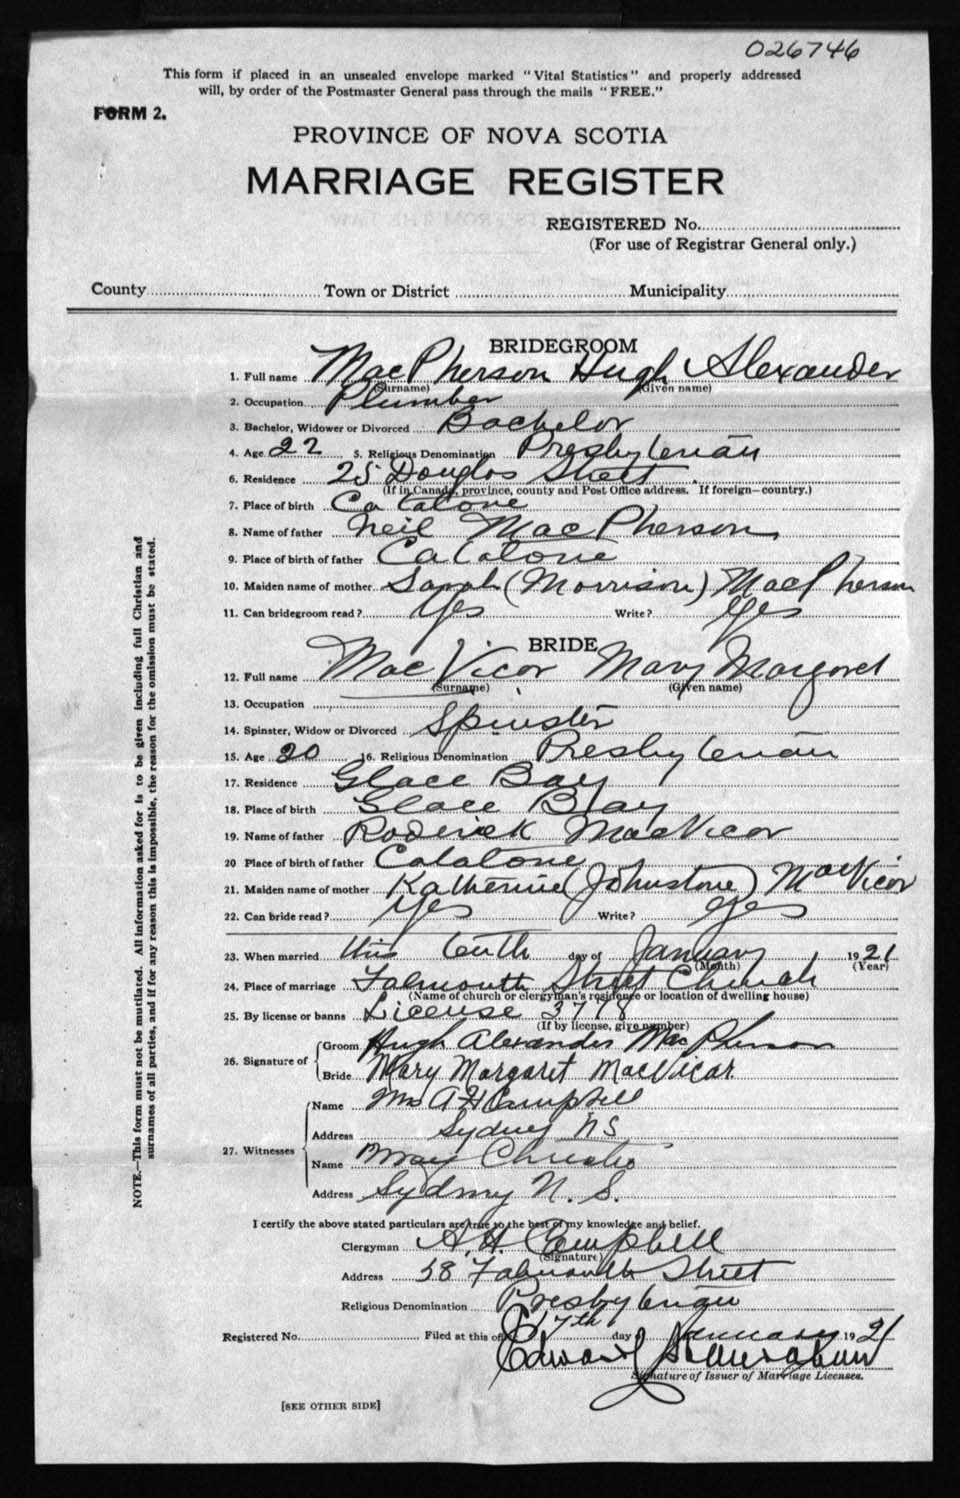 026746
This form if placed in an unsealed envelope marked "Vital Statistics" and properly addressed
will, by order of the Postmaster General pass through the mails "FREE."
FORM 2.
PROVINCE OF NOVA SCOTIA
MARRIAGE REGISTER
REGISTERED No.
(For use of Registrar General only.)
County Town or District Municipality
BRIDEGROOM
1. Full name MacPherson Hugh Alexander
(Surname) (Given name)
2. Occupation Plumber
3. Bachelor, Widower or Divorced Bachelor
4. Age 22 5. Religious Denomination Presbyterian
6. Residence 25 Douglas Street
(If in Canada, province, county and Post Office address. If foreign—country.)
7. Place of birth Catalone
8. Name of father Neil MacPherson
9. Place of birth of father Catalone
10. Maiden name of mother Sarah (Morrison) MacPherson
11. Can bridegroom read? Yes Write? Yes
BRIDE
12. Full name MacVicar Mary Margaret
(Surname) (Given name)
13. Occupation
14. Spinster, Widow or Divorced Spinster
15. Age 20 16. Religious Denomination Presbyterian
17. Residence Glace Bay
18. Place of birth Glace Bay
19. Name of father Roderick MacVicar
20 Place of birth of father Catalone
21. Maiden name of mother Katherine (Johnstone) MacVicar
22. Can bride read? Yes Write? Yes
23. When married this tenth day of January 1921
(Month) (Year)
24. Place of marriage Falmouth Street Church
(Name of church or clergyman's residence or location of dwelling house)
25. By license or banns License 3778
(If by license, give number)
26. Signature of Groom Hugh Alexander MacPherson
Bride Mary Margaret MacVicar
27. Witnesses Name Mrs A H Campbell
Address Sydney N S
Name May Christie
Address Sydney N. S.
I certify the above stated particulars are true to the best of my knowledge and belief.
Clergyman A. H. Campbell
(Signature)
Address 58 Falmouth Street
Religious Denomination Presbyterian
Registered No. Filed at this office 17th day of January 1921
Edward
Signature of Issuer of Marriage Licenses.
[SEE OTHER SIDE]
NOTE.—This form must not be mutilated. All information asked for is to be given including full Christian and
surnames of all parties, and if for any reason this is impossible, the reason for the omission must be stated.